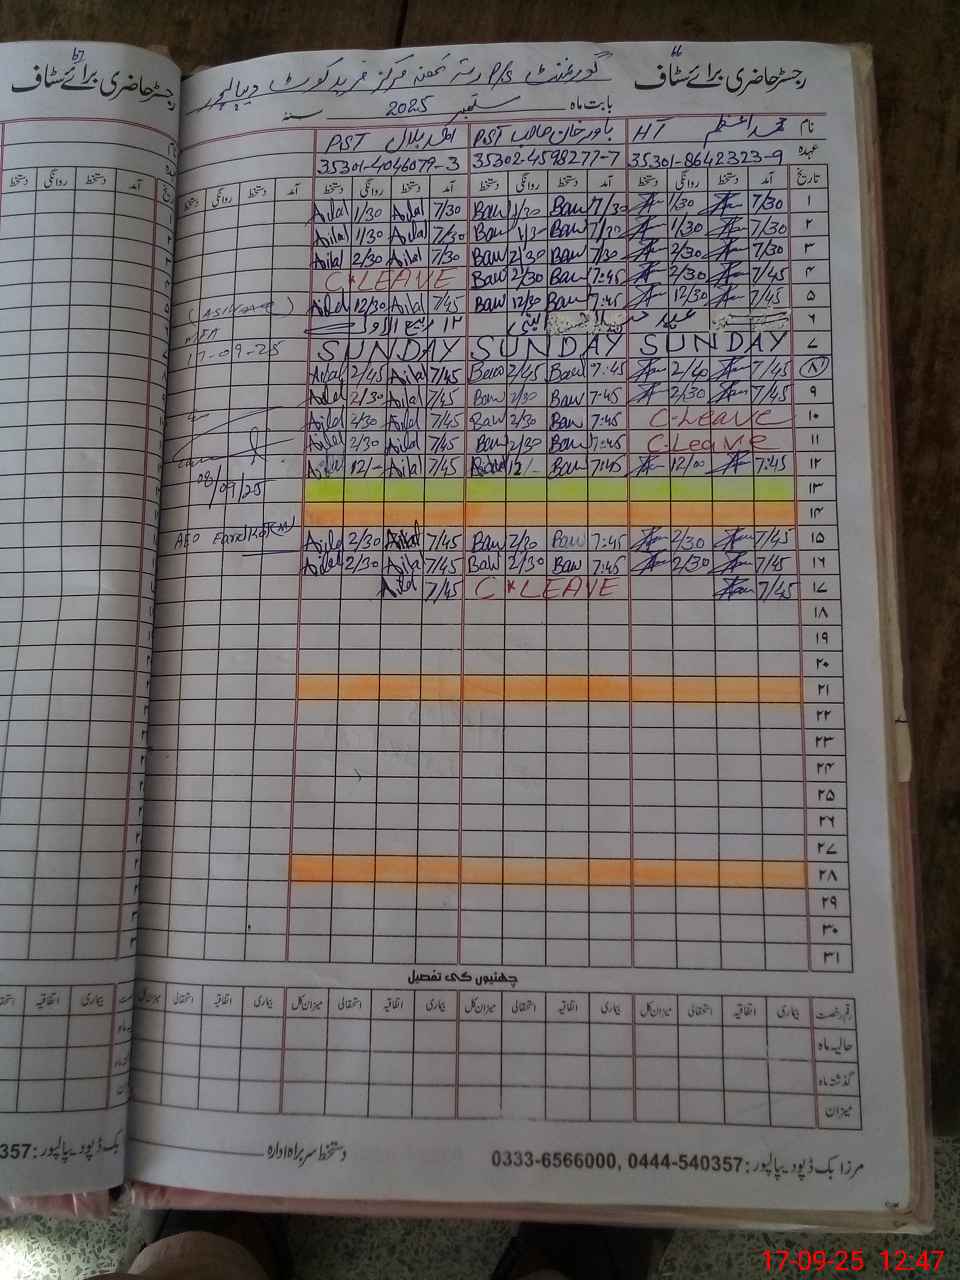 رجسٹر حاضری برائے سٹاف
گورنمنٹ P/S رتہ کھنہ مرکز فرید کوٹ دیپالپور
بابت ماہ ستمبر 2025 سنہ
رجسٹر حاضری برائے سٹاف
نام محمد اعظم HT باور خان صاحب PST احمد بلال PST
عہدہ 35301-8642323-9 35302-4598277-7 35301-4046079-3
تاریخ آمد دستخط روانگی دستخط آمد دستخط روانگی دستخط آمد دستخط روانگی دستخط آمد دستخط روانگی دستخط
۱ 7/30 1/30 7/30 Baw 1/30 Baw 7/30 Ailal 1/30 Ailal
۲ 7/30 1/30 7/30 Baw 1/3- Baw 7/30 Ailal 1/30 Ailal
۳ 7/30 2/30 7/30 Baw 2/30 Baw 7/30 Ailal 2/30 Ailal
۴ 7/45 2/30 7:45 Baw 2/30 Baw C*LEAVE
۵ 7/45 12/30 7:45 Baw 12/30 Baw 7/45 Ailal 12/30 Ailal
۶ عید ۱۲ ربیع الاول
۷ SUNDAY SUNDAY SUNDAY
۸ 7/45 2/40 7:45 Baw 2/45 Baw 7/45 Ailal 2/45 Ailal
۹ 7/45 2/30 7:45 Baw 2/30 Baw 7/45 Ailal 2/30 Ailal
۱۰ C-Leave 7:45 Baw 2/30 Baw 7/45 Ailal 2/30 Ailal
۱۱ C-Leave 7:45 Baw 2/30 Baw 7/45 Ailal 2/30 Ailal
۱۲ 7:45 12/00 7:45 Baw 12/- 7/45 Ailal 12/- Ailal
۱۳
۱۴
۱۵ 7/45 2/30 7:45 Baw 2/30 Baw 7/45 Ailal 2/30 Ailal
۱۶ 7/45 2/30 7:45 Baw 2/30 Baw 7/45 Ailal 2/30 Ailal
۱۷ 7/45 C*LEAVE 7/45 Ailal
17-09-25
08/09/25
AEO Farid Kot
۱۸
۱۹
۲۰
۲۱
۲۲
۲۳
۲۴
۲۵
۲۶
۲۷
۲۸
۲۹
۳۰
۳۱
چھٹیوں کی تفصیل
رقم رخصت بیماری اتفاقیہ استحقاقی میزان کل بیماری اتفاقیہ استحقاقی میزان کل بیماری اتفاقیہ استحقاقی میزان کل بیماری اتفاقیہ استحقاقی میزان کل
حالیہ ماہ
گذشتہ ماہ
میزان
دستخط سربراہ ادارہ
مرزا بک ڈپو دیپالپور: 0333-6566000, 0444-540357
17-09-25 12:47